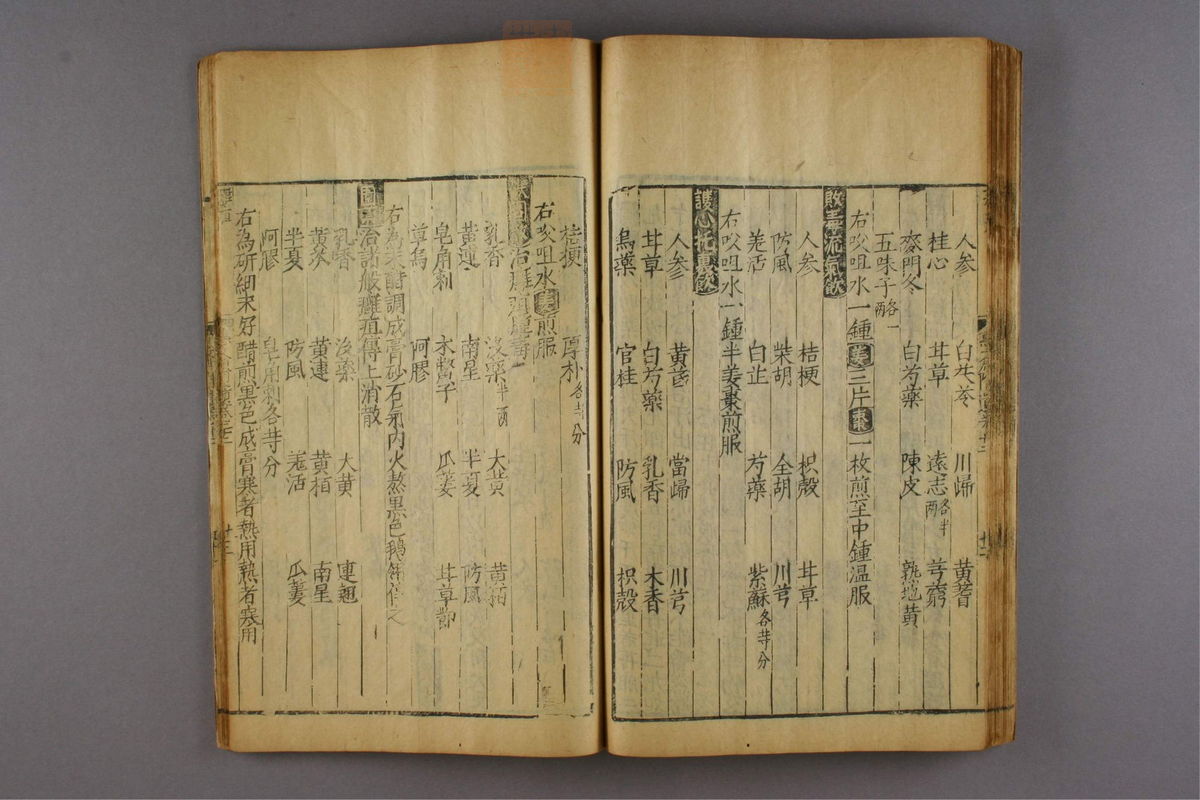 人参　白茯苓　川歸　黄蓍
桂心　甘草　遠志各半兩　芎藭
麥門冬　白芍藥　陳皮　熟地黄
五味子各一兩
右㕮咀水一鍾姜三片棗一枚煎至中鍾温服
敗毒流氣飲
人参　桔梗　枳殻　甘草
防風　柴胡　全胡　川芎
羌活　白芷　芍藥　紫蘇各等分
右㕮咀水一鍾半姜棗煎服
護心托裏飲
人参　黄茋　當歸　川芎
甘草　白芍藥　乳香　木香
烏藥　官桂　防風　枳殻
桔梗　厚朴各等分
右㕮咀水姜煎服
治癰疽
乳香　没藥半兩　大黄　黄栢
黄連　南星　半夏　防風
皂角刺　木鱉子　瓜蔞　甘草節
草烏　阿膠
右為末醋調成膏砂石氣内火熬黒色鵝
治諸般癰疽傅上消散
乳香　没藥　大黄　連翹
黄芩　黄連　黄栢　南星
半夏　防風　羗活　瓜蔞
阿膠　皂角刺各等分
右為研細末好醋煎黒色成膏寒者熱用熱者寒用